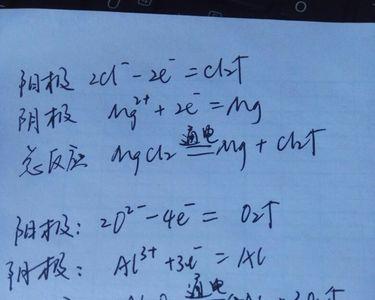 阳极 2Cl⁻ - 2e⁻ = Cl₂↑
阴极 Mg²⁺ + 2e⁻ = Mg
总反应 MgCl₂ 通电═ Mg + Cl₂↑
阳极: 2O²⁻ - 4e⁻ = O₂↑
阴极: Al³⁺ + 3e⁻ = Al
通电